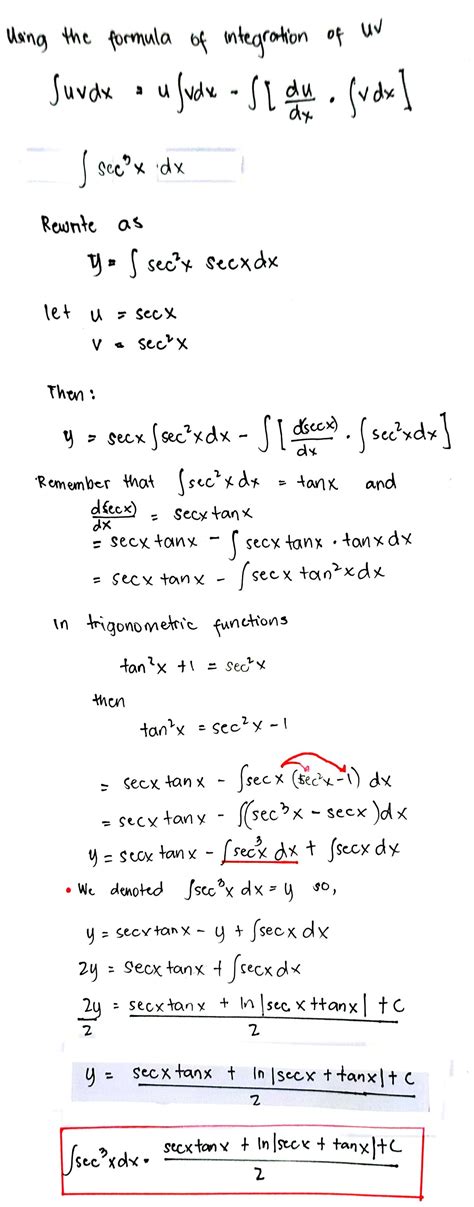 Using the formula of integration of uv
∫uvdx = u∫vdx - ∫[du/dx · ∫vdx]
∫ sec³x · dx
Rewrite as
y = ∫ sec²x secxdx
let u = secx
v = sec²x
Then:
y = secx ∫sec²xdx - ∫[d(secx)/dx · ∫sec²xdx]
Remember that ∫sec²xdx = tanx and
d(secx)/dx = secxtanx
= secxtanx - ∫secxtanx · tanxdx
= secxtanx - ∫secx tan²xdx
In trigonometric functions
tan²x +1 = sec²x
then
tan²x = sec²x -1
= secxtanx - ∫secx (sec²x-1) dx
= secxtanx - ∫(sec³x - secx)dx
y = secxtanx - ∫sec³x dx + ∫secxdx
• We denoted ∫sec³x dx = y so,
y = secxtanx - y + ∫secxdx
2y = secxtanx + ∫secxdx
2y/2 = secxtanx + ln|secx+tanx| + C/2
y = secxtanx + ln|secx + tanx| + C/2
∫sec³xdx = secxtanx + ln|secx + tanx| + C/2